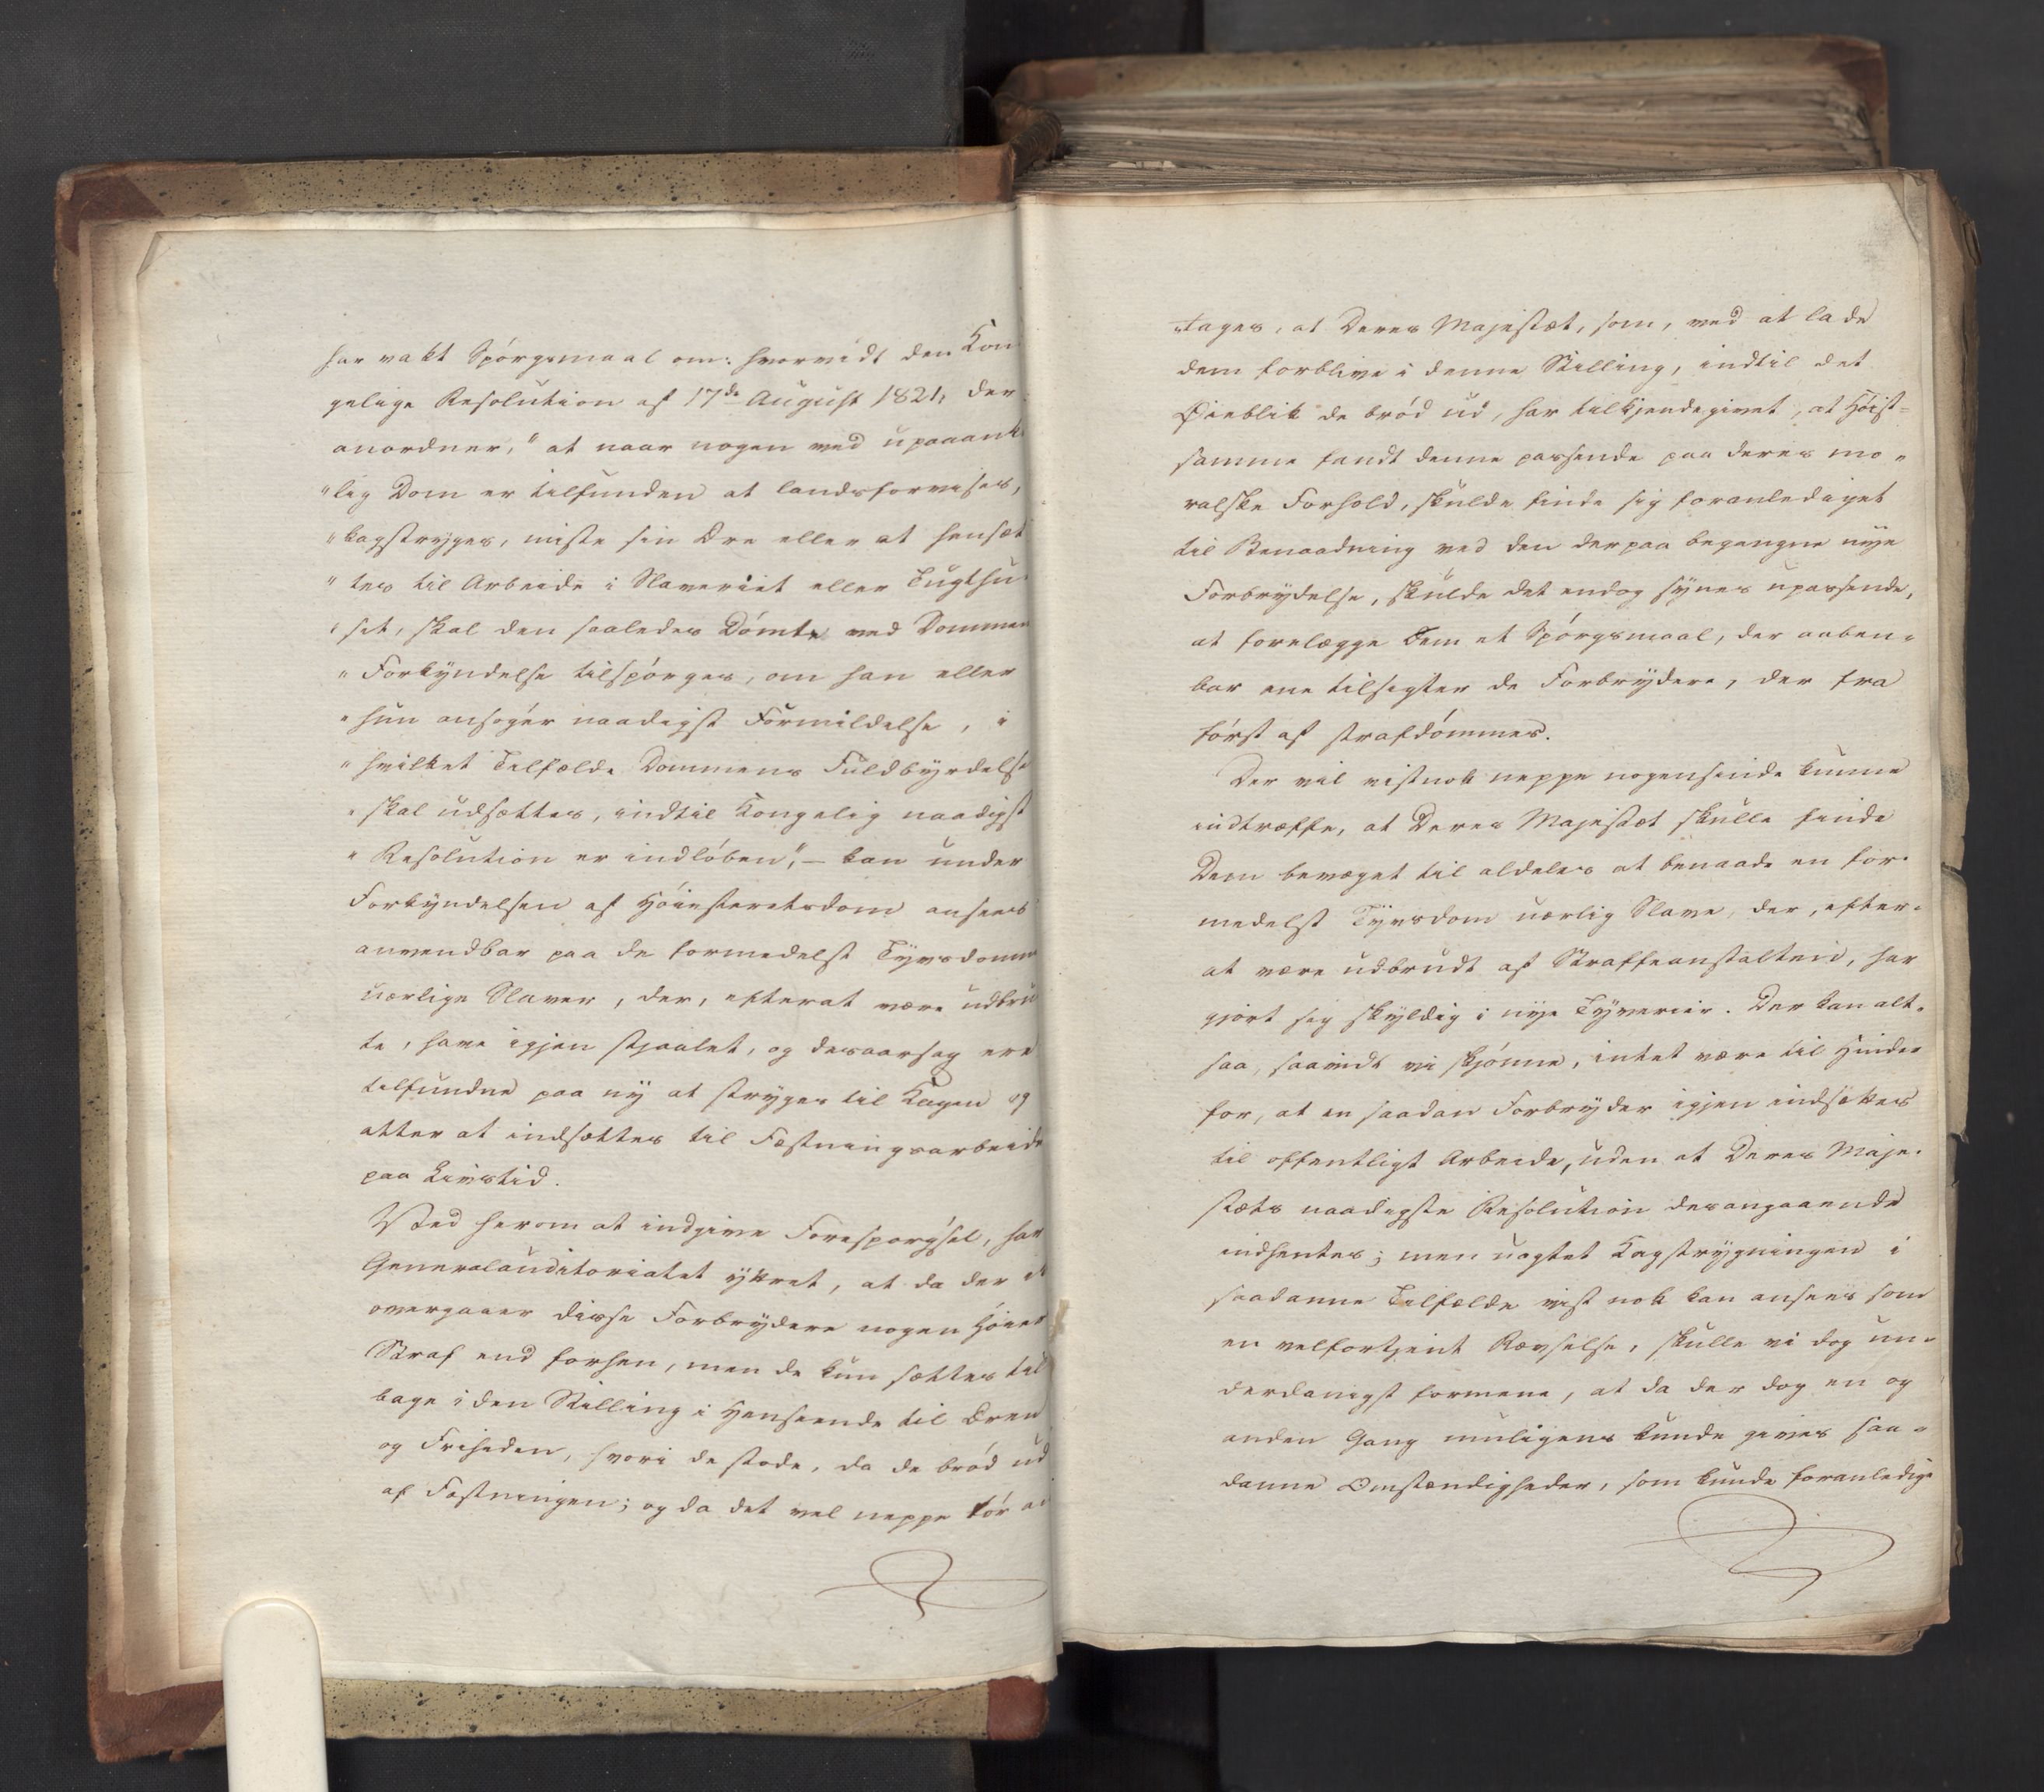 har vakt Spörgsmaal om: hvorvidt den Kon
gelige Resolution af 17de August 1821, der
anordner, "at naar nogen ved upaaank
"lig Dom er tilfunden at landsforvises,
"kagstryges, miste sin Ære eller at hensæt
"tes til Arbeide i Slaveriet eller Tugthu
"set, skal den saaledes Dömte ved Dommen
"Forkyndelse tilspörges, om han eller
"hun ansöger naadigst Formildelse, i
"hvilket Tilfælde Dommens Fuldbyrdelse
"skal udsættes, indtil Kongelig naadigst
"Resolution er indlöben", – kan under
Forkyndelsen af Höiesteretsdom ansees
anvendbar paa de formedelst Tyvsdomme
uærlige Slaver, der, efterat være udbru
te, have igjen stjaalet, og desaarsag ere
tilfundne paa ny at stryges til Kagen og
atter at indsættes til Fæstningsarbeide
paa Livstid.
Ved herom at indgive Forespörgsel, har
Generalauditoriatet yttret, at da der ei
overgaaer disse Forbrydere nogen höiere
Straf end forhen, men de kun sættes til
bage i den Stilling i Henseende til Æren
og Friheden, hvori de stode, da de bröd ud
af Fæstningen; og da det vel neppe tör an
"tages, at Deres Majestæt, som, ved at lade
dem forblive i denne Stilling, indtil det
Öieblik de bröd ud, har tilkjendegivet, at Höist-
samme fandt denne passende paa deres mo-
ralske Forhold, skulde finde sig foranlediget
til Benaadning ved den derpaa begangne nye
Forbrydelse, skulde det endog synes upassende,
at forelægge Dem et Spörgsmaal, der aaben-
bar ene tilsigter de Forbrydere, der fra
först af strafdömmes.
Der vil vistnok neppe nogensinde kunne
indtræffe, at Deres Majestæt skulle finde
Dem bevæget til aldeles at benaade en for-
medelst Tyvsdom uærlig Slave, der, efter-
at være udbrudt af Straffeanstalten, har
gjort sig skyldig i nye Tyverier. Der kan alt-
saa, saavidt vi skjönne, intet være til Hinder
for, at en saadan Forbryder igjen indsættes
til offentligt Arbeide, uden at Deres Maje-
stæts naadigste Resolution desangaaende
indhentes; men uagtet Kagstrygningen i
saadanne Tilfælde vist nok kan ansees som
en velfortjent Revselse, skulle vi dog un-
derdanigst formene, at da der dog en og
anden Gang muligens kunde gives saa-
danne Omstændigheder, som kunde foranledige